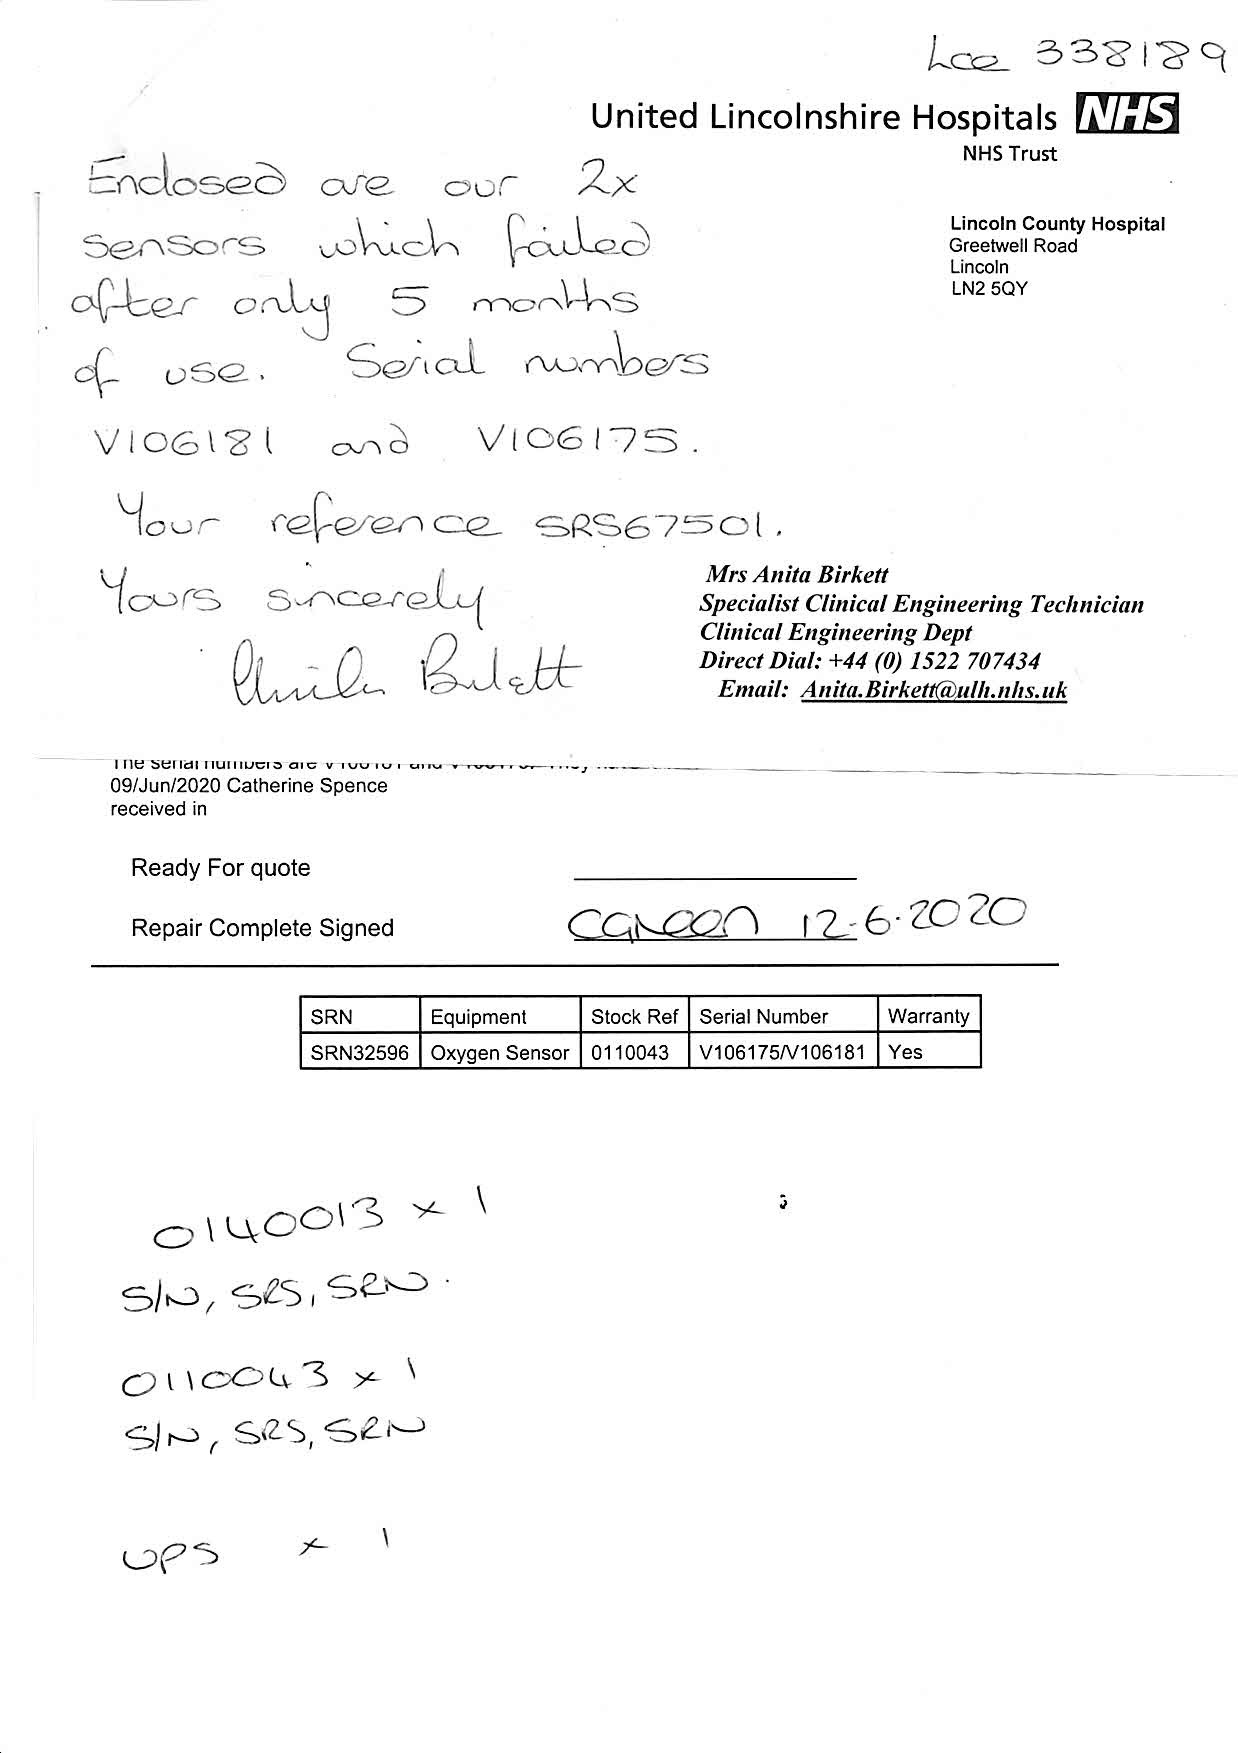 Lce 338189
United Lincolnshire Hospitals NHS
NHS Trust
Lincoln County Hospital
Greetwell Road
Lincoln
LN2 5QY
Enclosed are our 2x
sensors which failed
after only 5 months
of use. Serial numbers
V106181 and V106175.
Your reference SRS67501.
Yours sincerely
Mrs Anita Birkett
Specialist Clinical Engineering Technician
Clinical Engineering Dept
Direct Dial: +44 (0) 1522 707434
Email: Anita.Birkett@ulh.nhs.uk
The serial numbers are V106181 and V106175. They
09/Jun/2020 Catherine Spence
received in
Ready For quote
Repair Complete Signed CGreen 12-6-2020
SRN Equipment Stock Ref Serial Number Warranty
SRN32596 Oxygen Sensor 0110043 V106175/V106181 Yes
0140013 x 1
S/N, SRS, SRN.
0110043 x 1
S/N, SRS, SRN
UPS x 1